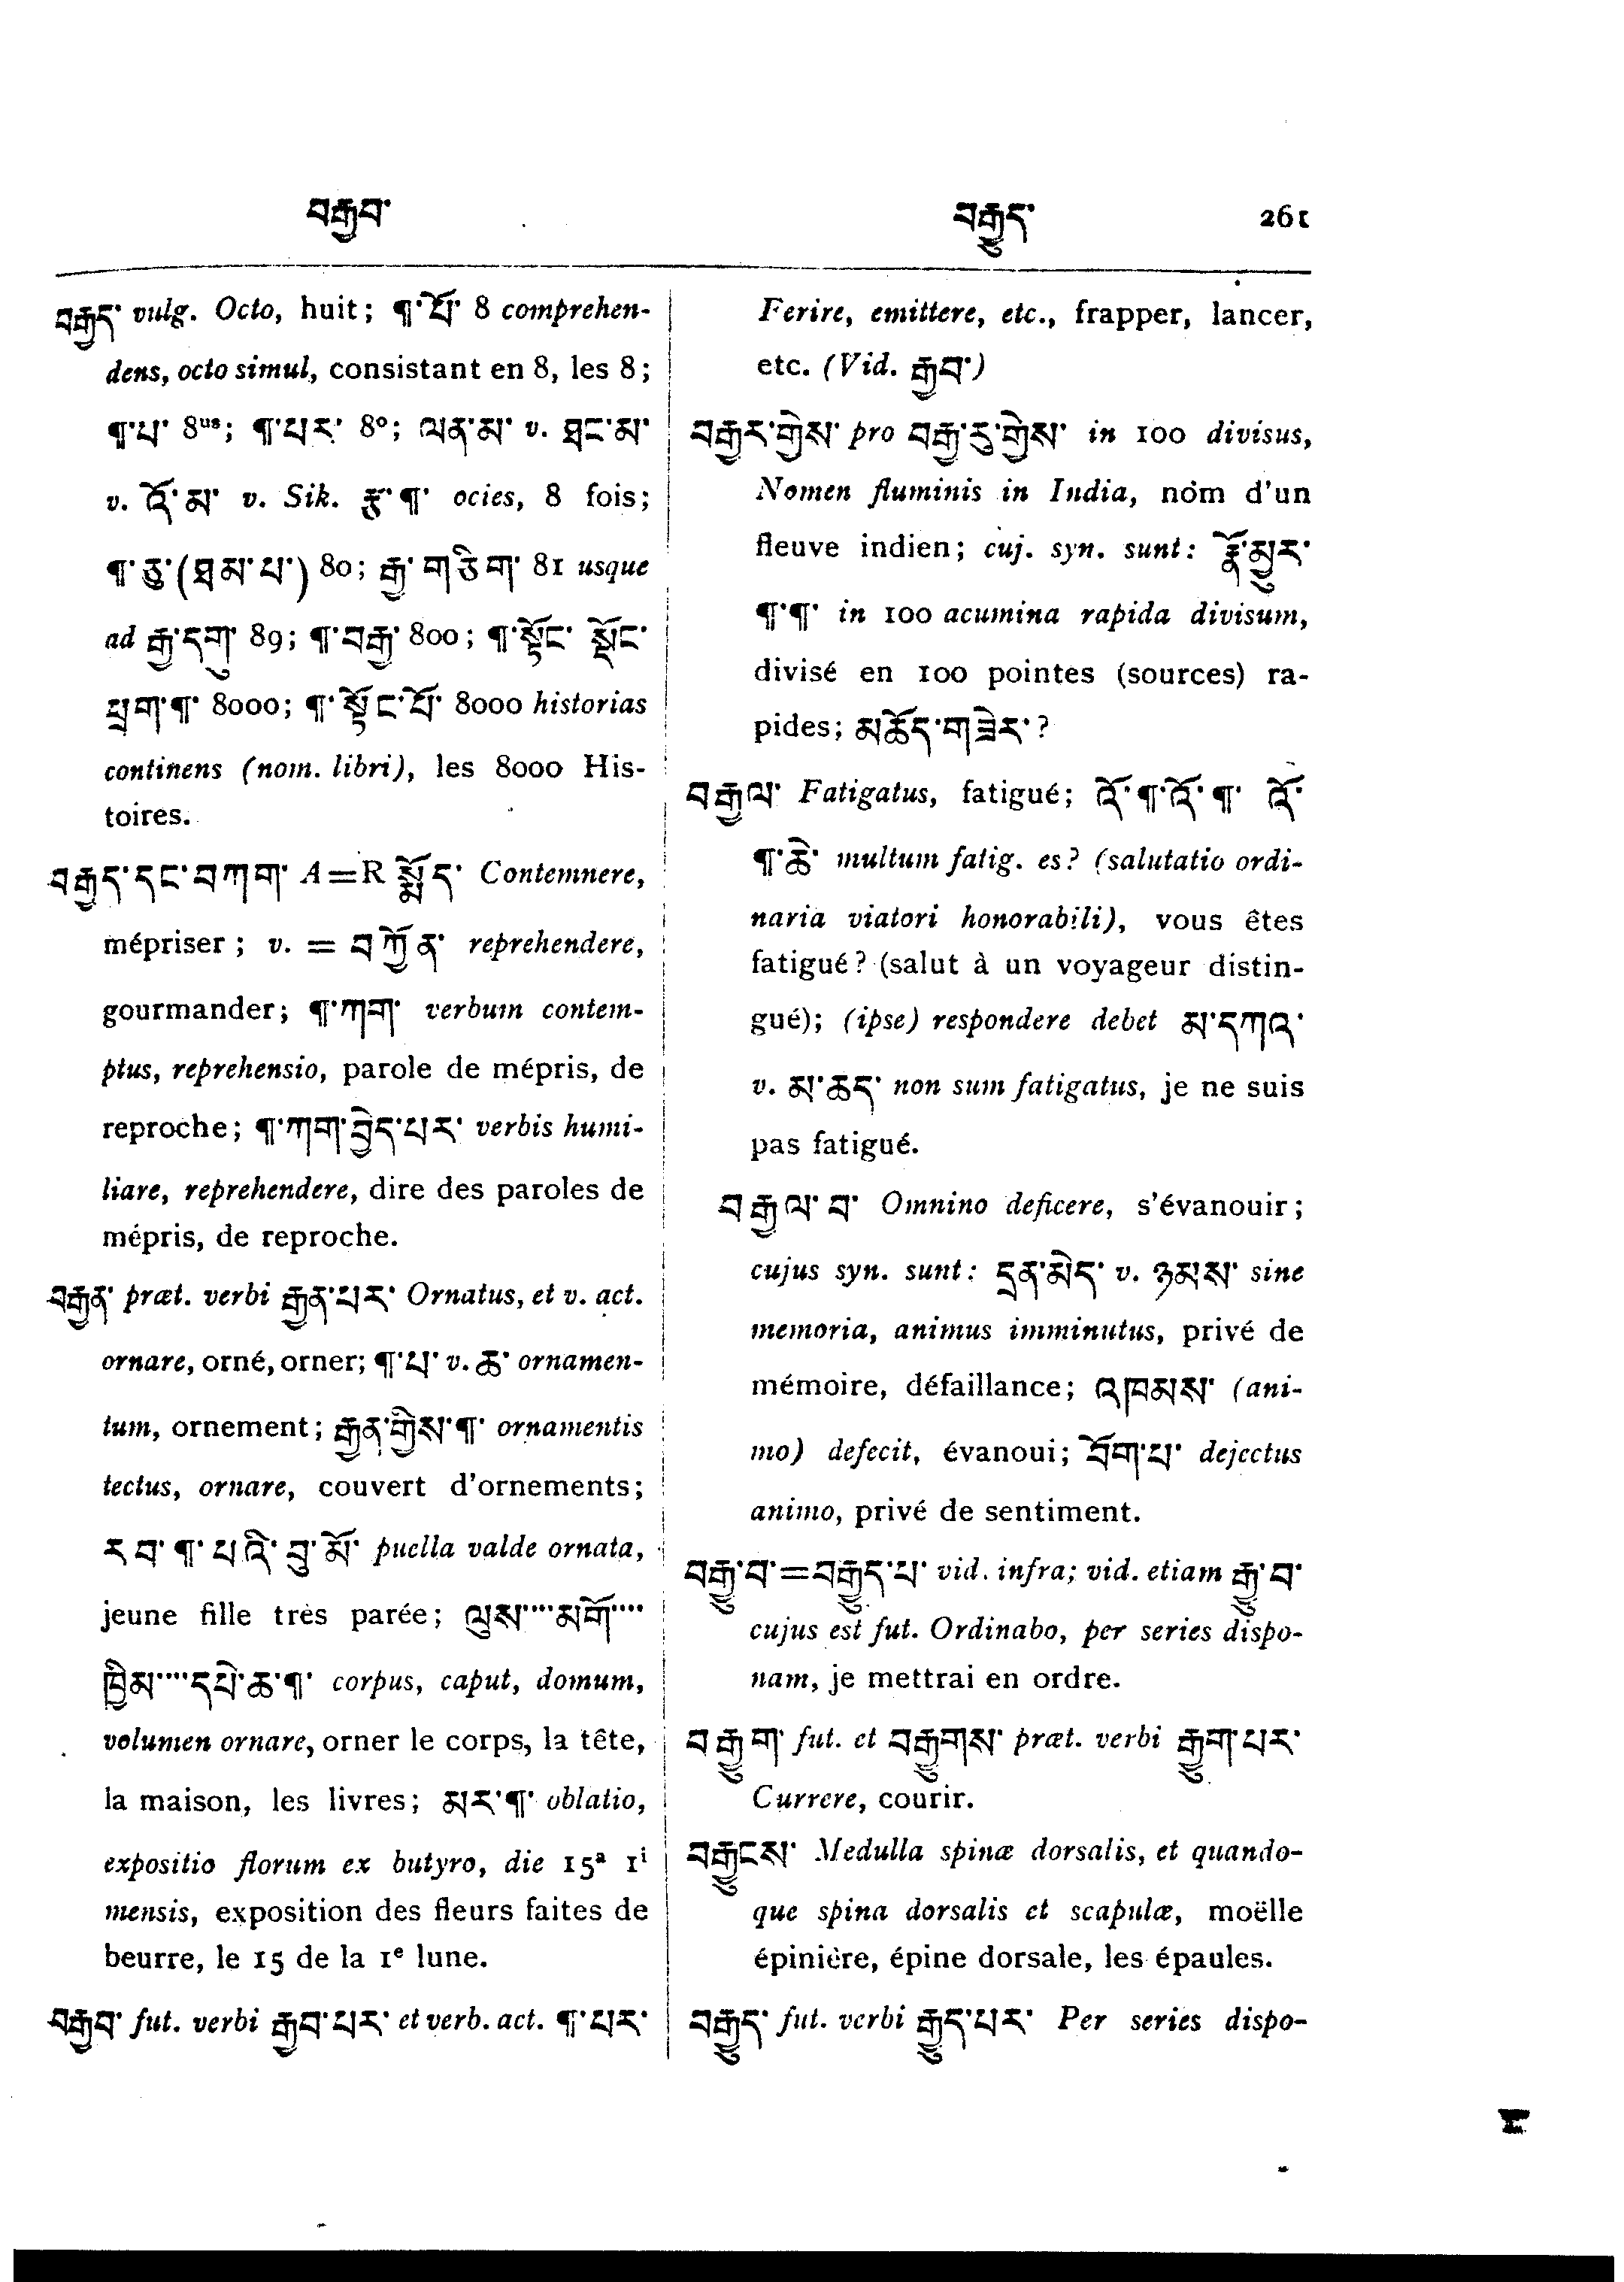 བརྒྱབ་ བརྒྱུད་ 261
བརྒྱད་ vulg. Octo, huit; ¶་པོ་ 8 comprehen-
dens, octo simul, consistant en 8, les 8;
¶་པ་ 8us; ¶་པར་ 8o; ལན་མ་ v. ཐང་མ་
v. འོ་མ་ v. Sik. རྩ་¶་ ocies, 8 fois;
¶་ཅུ་(ཐམ་པ་) 80; རྒྱ་གཅིག་ 81 usque
ad རྒྱ་དགུ་ 89; ¶་བརྒྱ་ 800; ¶་སྟོང་ སྟོང་
ཕྲག་¶་ 8000; ¶་སྟོང་པོ་ 8000 historias
continens (nom. libri), les 8000 His-
toires.
བརྒྱད་དང་བཀག་ A=R སྨོད་ Contemnere,
mépriser; v. = བཀྱོན་ reprehendere,
gourmander; ¶་ཀག་ verbum contem-
ptus, reprehensio, parole de mépris, de
reproche; ¶་ཀག་བྱེད་པར་ verbis humi-
liare, reprehendere, dire des paroles de
mépris, de reproche.
བརྒྱན་ præt. verbi རྒྱན་པར་ Ornatus, et v. act.
ornare, orné, orner; ¶་པ་ v. ཆ་ ornamen-
tum, ornement; རྒྱན་གྱིས་¶་ ornamentis
tectus, ornare, couvert d'ornements;
རབ་¶་པའི་བུ་མོ་ puella valde ornata,
jeune fille très parée; ལུས་····མགོ་····
ཁྱིམ་····དཔེ་ཆ་¶་ corpus, caput, domum,
volumen ornare, orner le corps, la tête,
la maison, les livres; མར་¶་ oblatio,
expositio florum ex butyro, die 15a 1i
mensis, exposition des fleurs faites de
beurre, le 15 de la 1e lune.
བརྒྱབ་ fut. verbi རྒྱབ་པར་ et verb. act. ¶་པར་
Ferire, emittere, etc., frapper, lancer,
etc. (Vid. རྒྱབ་)
བརྒྱར་གྱེས་ pro བརྒྱ་རུ་གྱེས་ in 100 divisus,
Nomen fluminis in India, nom d'un
fleuve indien; cuj. syn. sunt: རྣོ་མྱུར་
¶་¶་ in 100 acumina rapida divisum,
divisé en 100 pointes (sources) ra-
pides; མཆོད་གཟེར་?
བརྒྱལ་ Fatigatus, fatigué; འོ་¶་འོ་¶་ འོ་
¶་ཆེ་ multum fatig. es? (salutatio ordi-
naria viatori honorabili), vous êtes
fatigué? (salut à un voyageur distin-
gué); (ipse) respondere debet མ་དཀའ་
v. མ་ཆད་ non sum fatigatus, je ne suis
pas fatigué.
བརྒྱལ་བ་ Omnino deficere, s'évanouir;
cujus syn. sunt: དྲན་མེད་ v. ཉམས་ sine
memoria, animus imminutus, privé de
mémoire, défaillance; འཁམས་ (ani-
mo) defecit, évanoui; བོག་པ་ dejectus
animo, privé de sentiment.
བརྒྱུ་བ་=བརྒྱུད་པ་ vid. infra; vid. etiam རྒྱུ་བ་
cujus est fut. Ordinabo, per series dispo-
nam, je mettrai en ordre.
བརྒྱུག་ fut. et བརྒྱུགས་ præt. verbi རྒྱུག་པར་
Currere, courir.
བརྒྱུངས་ Medulla spinæ dorsalis, et quando-
que spina dorsalis et scapulæ, moëlle
épinière, épine dorsale, les épaules.
བརྒྱུད་ fut. verbi རྒྱུད་པར་ Per series dispo-